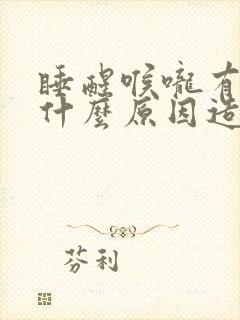 睡醒喉嚨有
什麼原因造
芬利